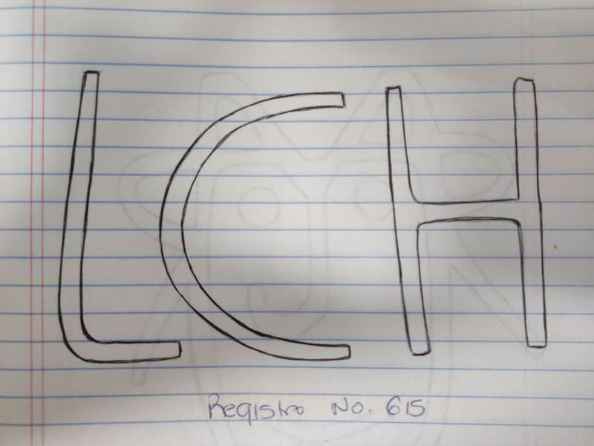 LCH
Registro No. 615